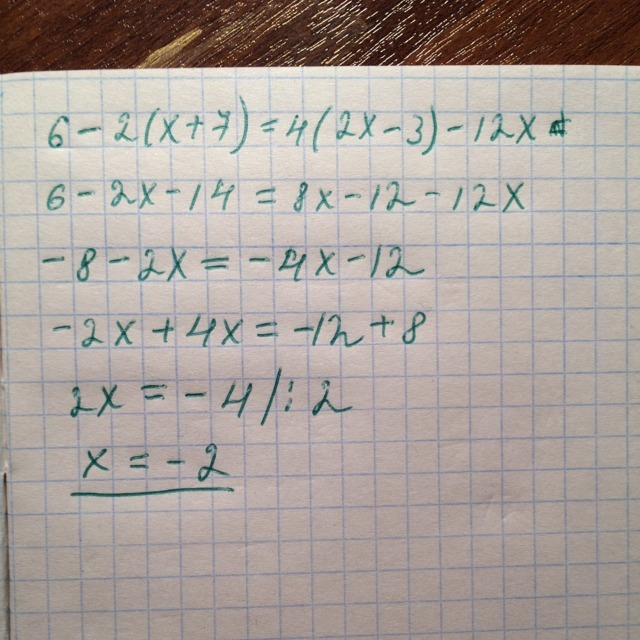 6 - 2(x+7) = 4(2x-3) - 12x
6 - 2x - 14 = 8x - 12 - 12x
-8 - 2x = -4x - 12
-2x + 4x = -12 + 8
2x = -4 /: 2
x = -2